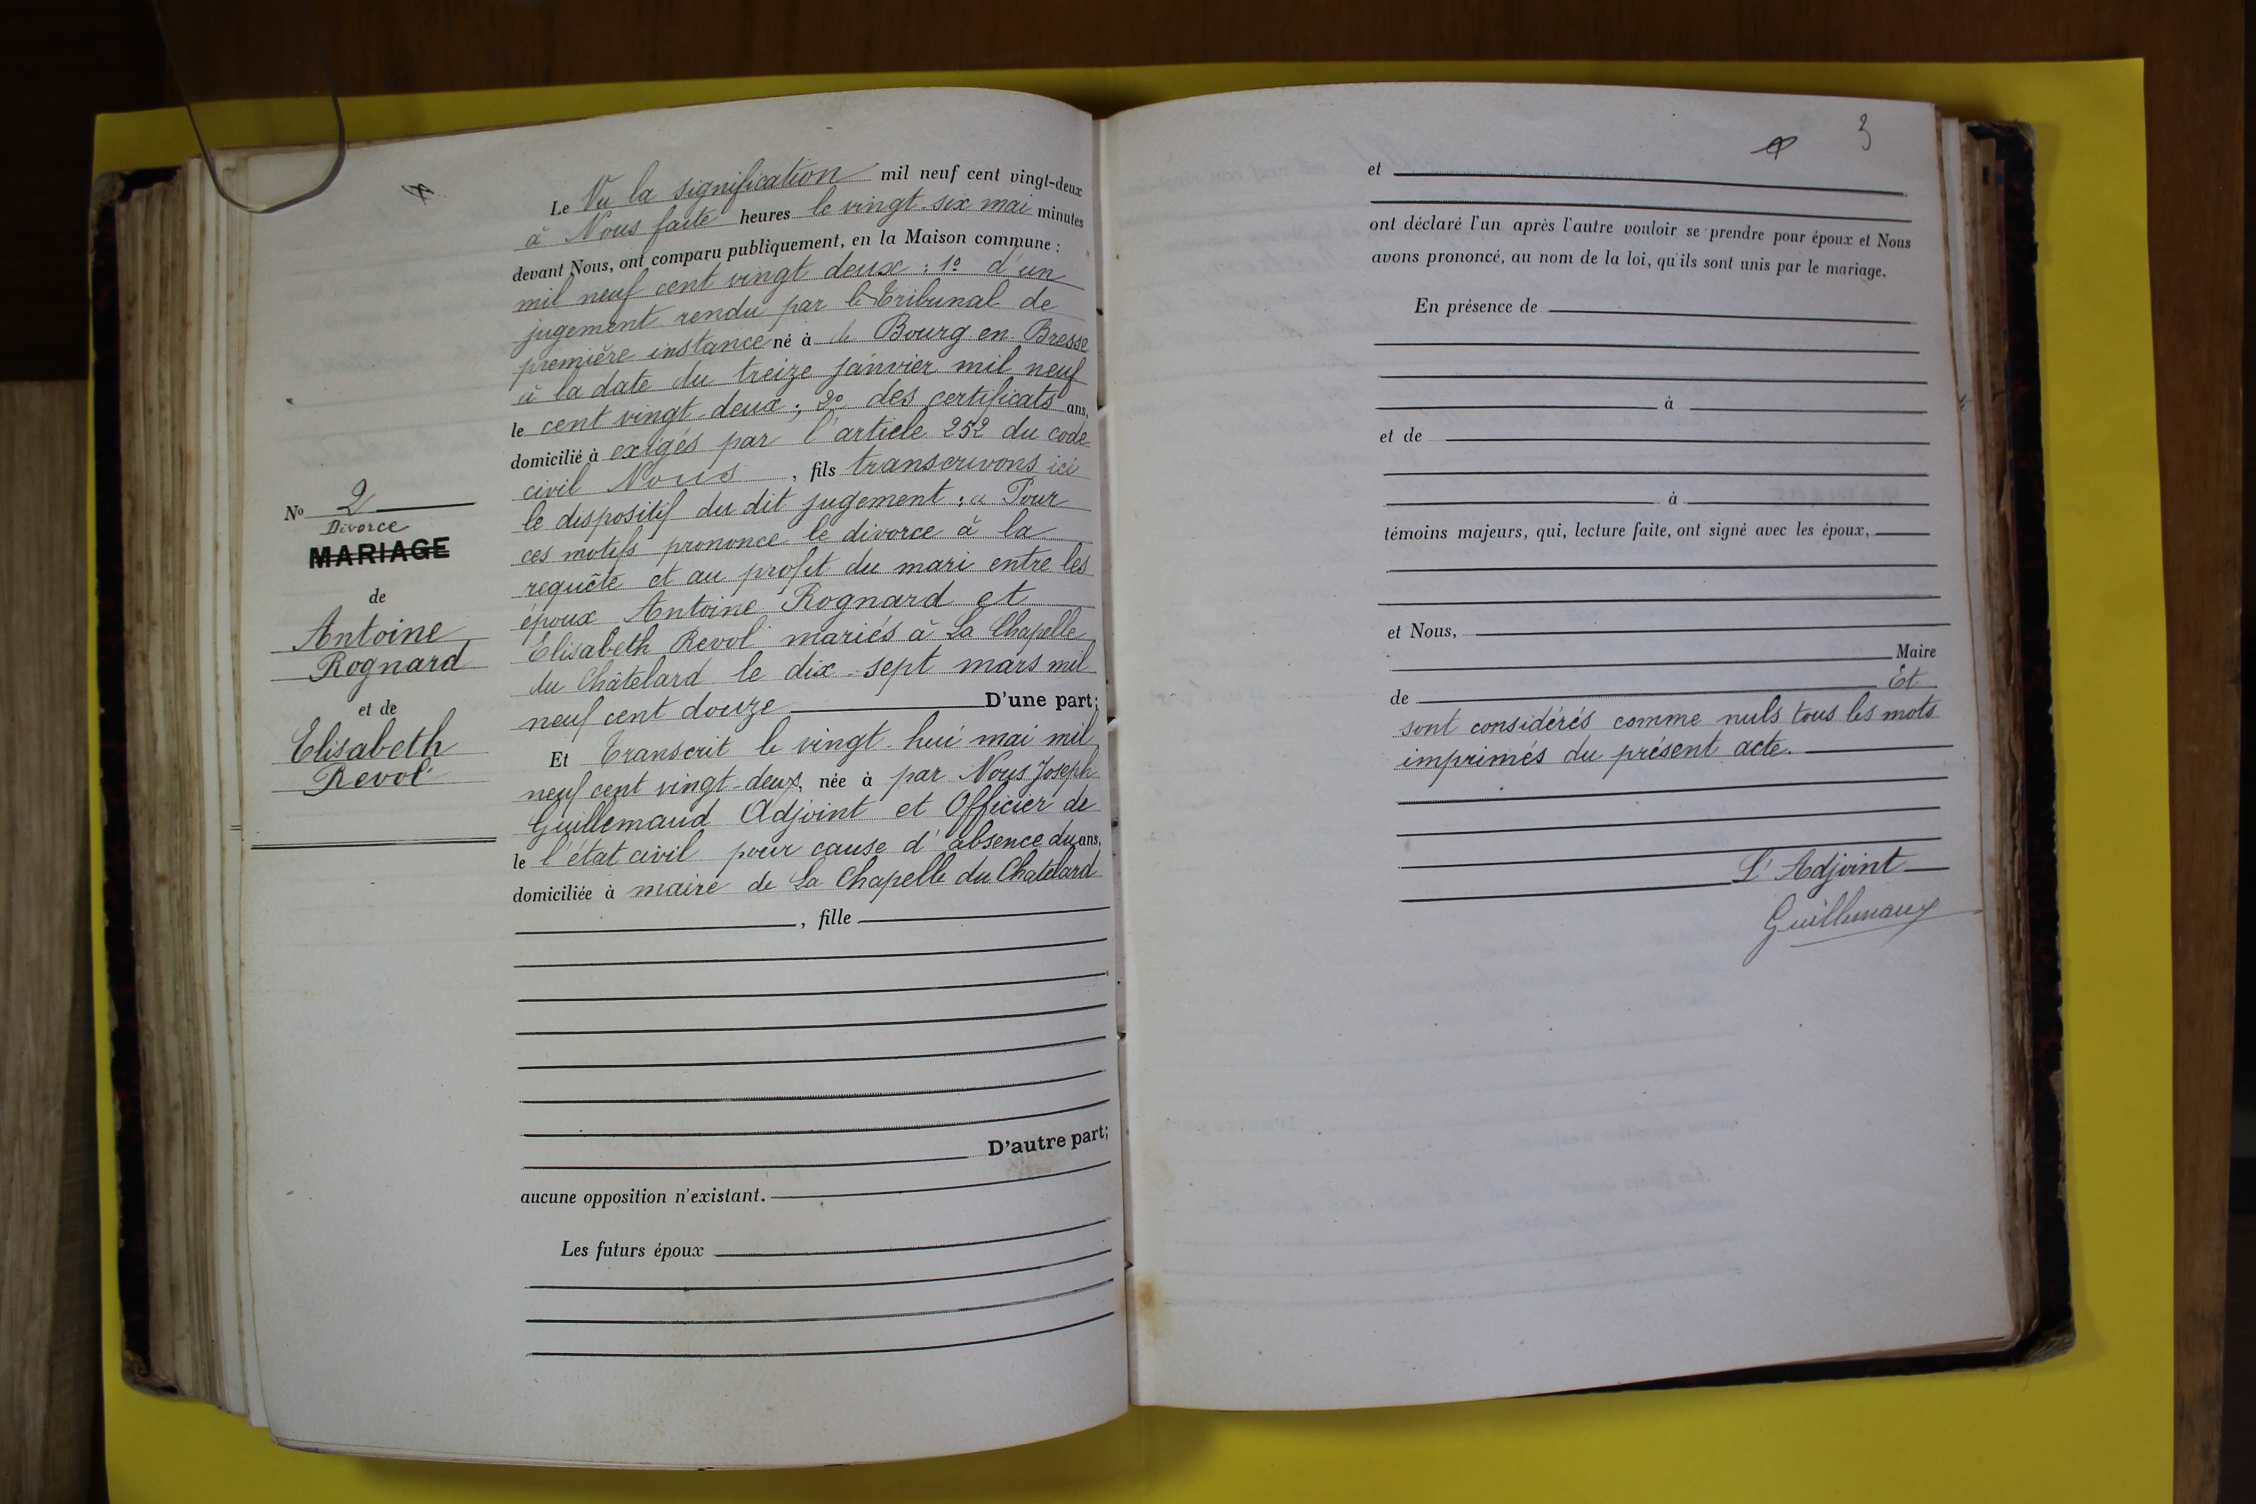 Le Vu la signification mil neuf cent vingt-deux
à Nous faite heures le vingt-six mai minutes
devant Nous, ont comparu publiquement, en la Maison commune :
mil neuf cent vingt deux : 1º d'un
jugement rendu par le Tribunal de
première instance né à de Bourg en Bresse
à la date du treize janvier mil neuf
le cent vingt-deux ; 2º des certificats ans,
domicilié à exigés par l'article 252 du code
civil Nous , fils transcrivons ici
le dispositif du dit jugement : « Pour
ces motifs prononce le divorce à la
requête et au profit du mari entre les
époux Antoine Rognard et
Elisabeth Revol mariés à La Chapelle
du Châtelard le dix-sept mars mil
neuf cent douze D'une part;
Et Transcrit le vingt-hui mai mil
neuf cent vingt-deux, née à par Nous Joseph
Guillemaud Adjoint et Officier de
le l'état civil pour cause d'absence du ans,
domiciliée à maire de La Chapelle du Chatelard
, fille
D'autre part;
aucune opposition n'existant.
Les futurs époux
Nº 2
Divorce
MARIAGE
de
Antoine
Rognard
et de
Elisabeth
Revol
3
et
ont déclaré l'un après l'autre vouloir se prendre pour époux et Nous
avons prononcé, au nom de la loi, qu'ils sont unis par le mariage.
En présence de
à
et de
à
témoins majeurs, qui, lecture faite, ont signé avec les époux,
et Nous,
Maire
de Et
sont considérés comme nuls tous les mots
imprimés du présent acte.
L'Adjoint
Guillemaux